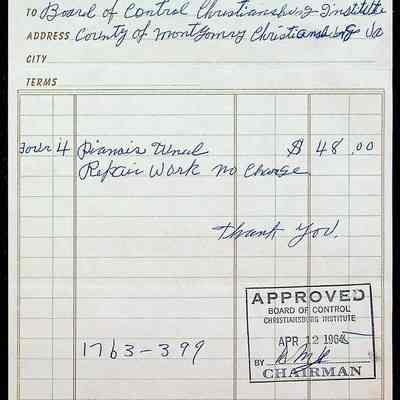 TO Board of Control Christiansburg Institute
ADDRESS County of Montgomry Christiansburg Va
CITY
TERMS
four 4 Pianois Tuned $ 48.00
Repair Work no Charge
Thank You.
1763-399
APPROVED
BOARD OF CONTROL
CHRISTIANSBURG INSTITUTE
APR 12 1964
BY
CHAIRMAN